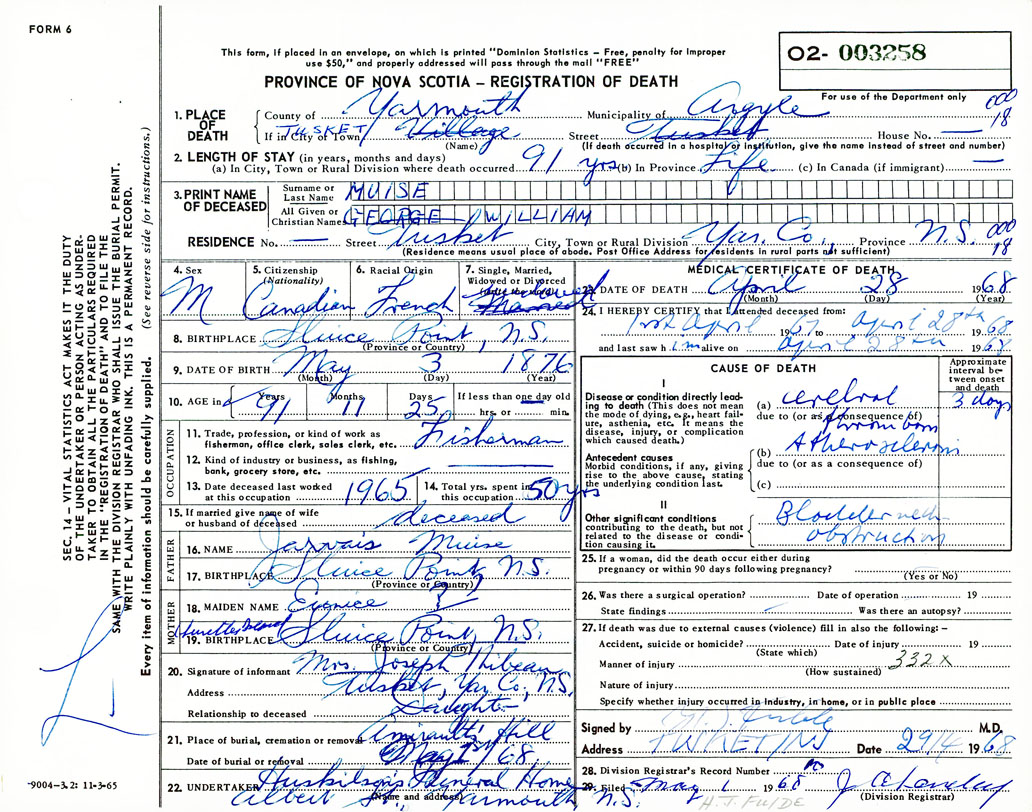 FORM 6
This form, if placed in an envelope, on which is printed "Dominion Statistics – Free, penalty for improper
use $50," and properly addressed will pass through the mail "FREE"
O2- 003258
PROVINCE OF NOVA SCOTIA – REGISTRATION OF DEATH
For use of the Department only
1. PLACE OF DEATH
County of Yarmouth Municipality of Argyle 000 18
If in City of Town TUSKET Village Street Tusket House No. —
(Name) (If death occurred in a hospital or institution, give the name instead of street and number)
2. LENGTH OF STAY (in years, months and days)
(a) In City, Town or Rural Division where death occurred 91 yrs (b) In Province Life (c) In Canada (if immigrant) —
3. PRINT NAME OF DECEASED
Surname or Last Name MUISE
All Given or Christian Names GEORGE WILLIAM
RESIDENCE No. — Street Tusket City, Town or Rural Division Yar. Co., Province N.S. 000 18
(Residence means usual place of abode. Post Office Address for residents in rural parts not sufficient)
4. Sex M
5. Citizenship (Nationality) Canadian
6. Racial Origin French
7. Single, Married, Widowed or Divorced
8. BIRTHPLACE Sluice Point, N.S.
(Province or Country)
9. DATE OF BIRTH May 3 1876
(Month) (Day) (Year)
10. AGE in Years 91 Months 11 Days 25 If less than one day old hrs. or min.
OCCUPATION
11. Trade, profession, or kind of work as fisherman, office clerk, sales clerk, etc. Fisherman
12. Kind of industry or business, as fishing, bank, grocery store, etc.
13. Date deceased last worked at this occupation 1965
14. Total yrs. spent in this occupation 50 yrs
15. If married give name of wife or husband of deceased deceased
FATHER
16. NAME Jarvais Muise
17. BIRTHPLACE Sluice Point, N.S.
(Province or Country)
MOTHER
18. MAIDEN NAME Eunice ?
19. BIRTHPLACE Sluice Point, N.S.
(Province or Country)
20. Signature of informant Mrs. Joseph Thibeau
Address Tusket, Yar. Co., N.S.
Relationship to deceased Daughter
21. Place of burial, cremation or removal Amirault's Hill
Date of burial or removal May 1st/68
22. UNDERTAKER Huskilson's Funeral Home
Albert St., Yarmouth N.S.
(Name and address)
MEDICAL CERTIFICATE OF DEATH
23. DATE OF DEATH April 28 1968
(Month) (Day) (Year)
24. I HEREBY CERTIFY that I attended deceased from:
1st April 1967 to April 28th 1968
and last saw him alive on April 28th 1968
CAUSE OF DEATH
Approximate interval between onset and death
I
Disease or condition directly leading to death (This does not mean the mode of dying, e.g., heart failure, asthenia, etc. It means the disease, injury, or complication which caused death.)
(a) cerebral 3 days
due to (or as a consequence of)
thrombosis
Antecedent causes
Morbid conditions, if any, giving rise to the above cause, stating the underlying condition last.
(b) Atherosclerosis
due to (or as a consequence of)
(c)
II
Other significant conditions contributing to the death, but not related to the disease or condition causing it.
Bladder neck
obstruction
25. If a woman, did the death occur either during
pregnancy or within 90 days following pregnancy?
(Yes or No)
26. Was there a surgical operation? Date of operation 19
State findings Was there an autopsy?
27. If death was due to external causes (violence) fill in also the following: –
Accident, suicide or homicide? Date of injury 19
(State which)
Manner of injury 332X
(How sustained)
Nature of injury
Specify whether injury occurred in industry, in home, or in public place
Signed by M.D.
Address TUSKET NS Date 29/4 1968
28. Division Registrar's Record Number
29. Filed May 1 1968
(Division Registrar)
H.J. FULDE
SEC. 14 – VITAL STATISTICS ACT MAKES IT THE DUTY
OF THE UNDERTAKER OR PERSON ACTING AS UNDER-
TAKER TO OBTAIN ALL THE PARTICULARS REQUIRED
IN THE "REGISTRATION OF DEATH" AND TO FILE THE
SAME WITH THE DIVISION REGISTRAR WHO SHALL ISSUE THE BURIAL PERMIT.
WRITE PLAINLY WITH UNFADING INK. THIS IS A PERMANENT RECORD.
Every item of information should be carefully supplied. (See reverse side for instructions.)
-9004-3.2: 11-3-65